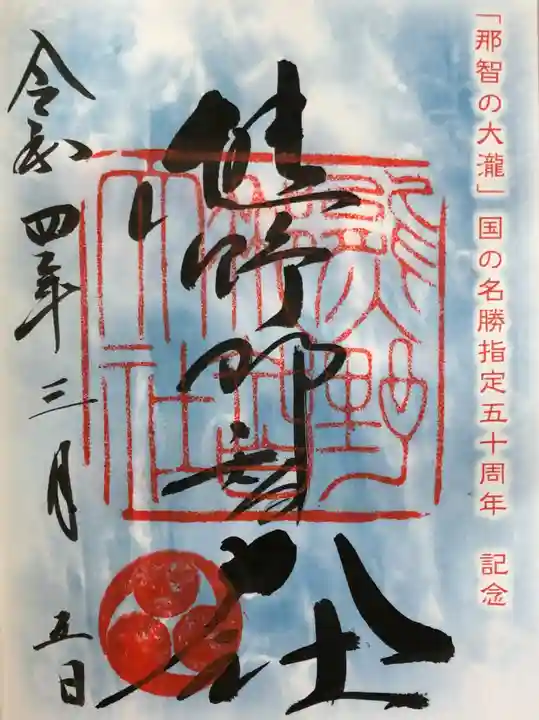 「那智の大瀧」国の名勝指定五十周年 記念
熊野那智大社
熊野那智大社
令和四年三月五日